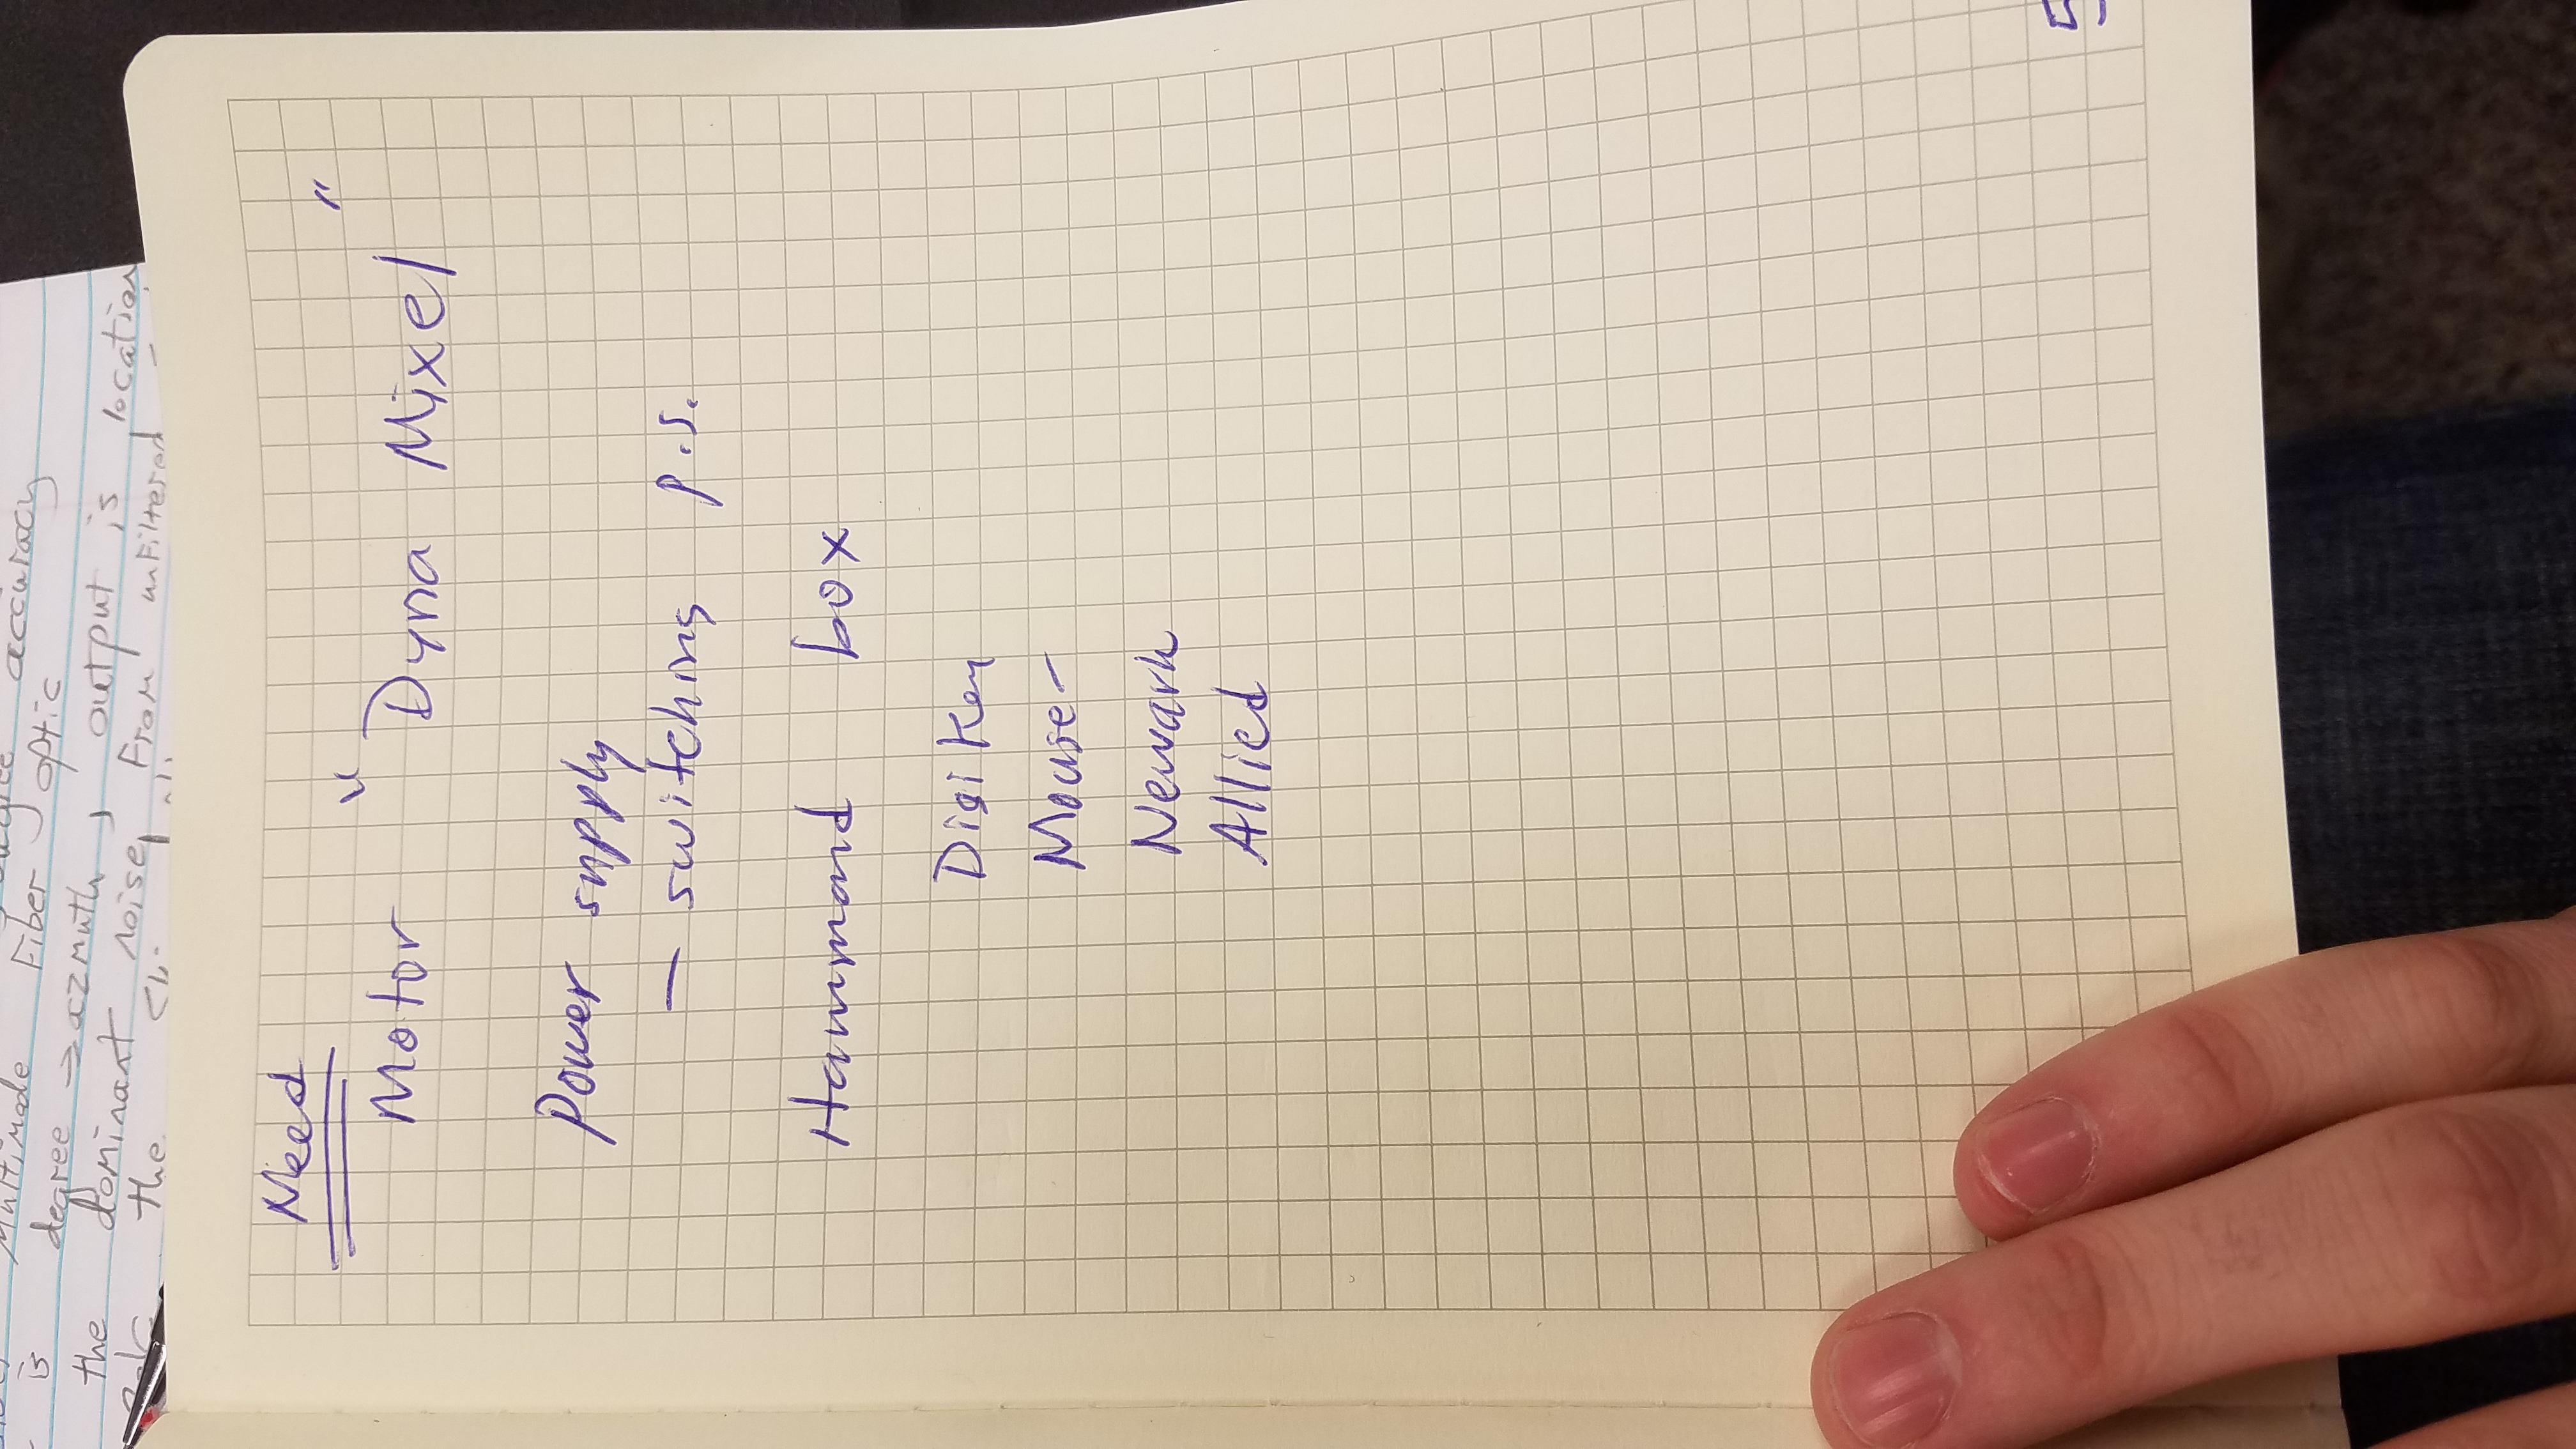 degree accuracy
Multimode Fiber optic
is degree → azmuth, output is location
the dominant noise, From unfiltered
the
Need
Motor "Dyna Mixel"
Power supply
— switching p.s.
Hammond box
Digi Key
Mouser
Newark
Allied
5